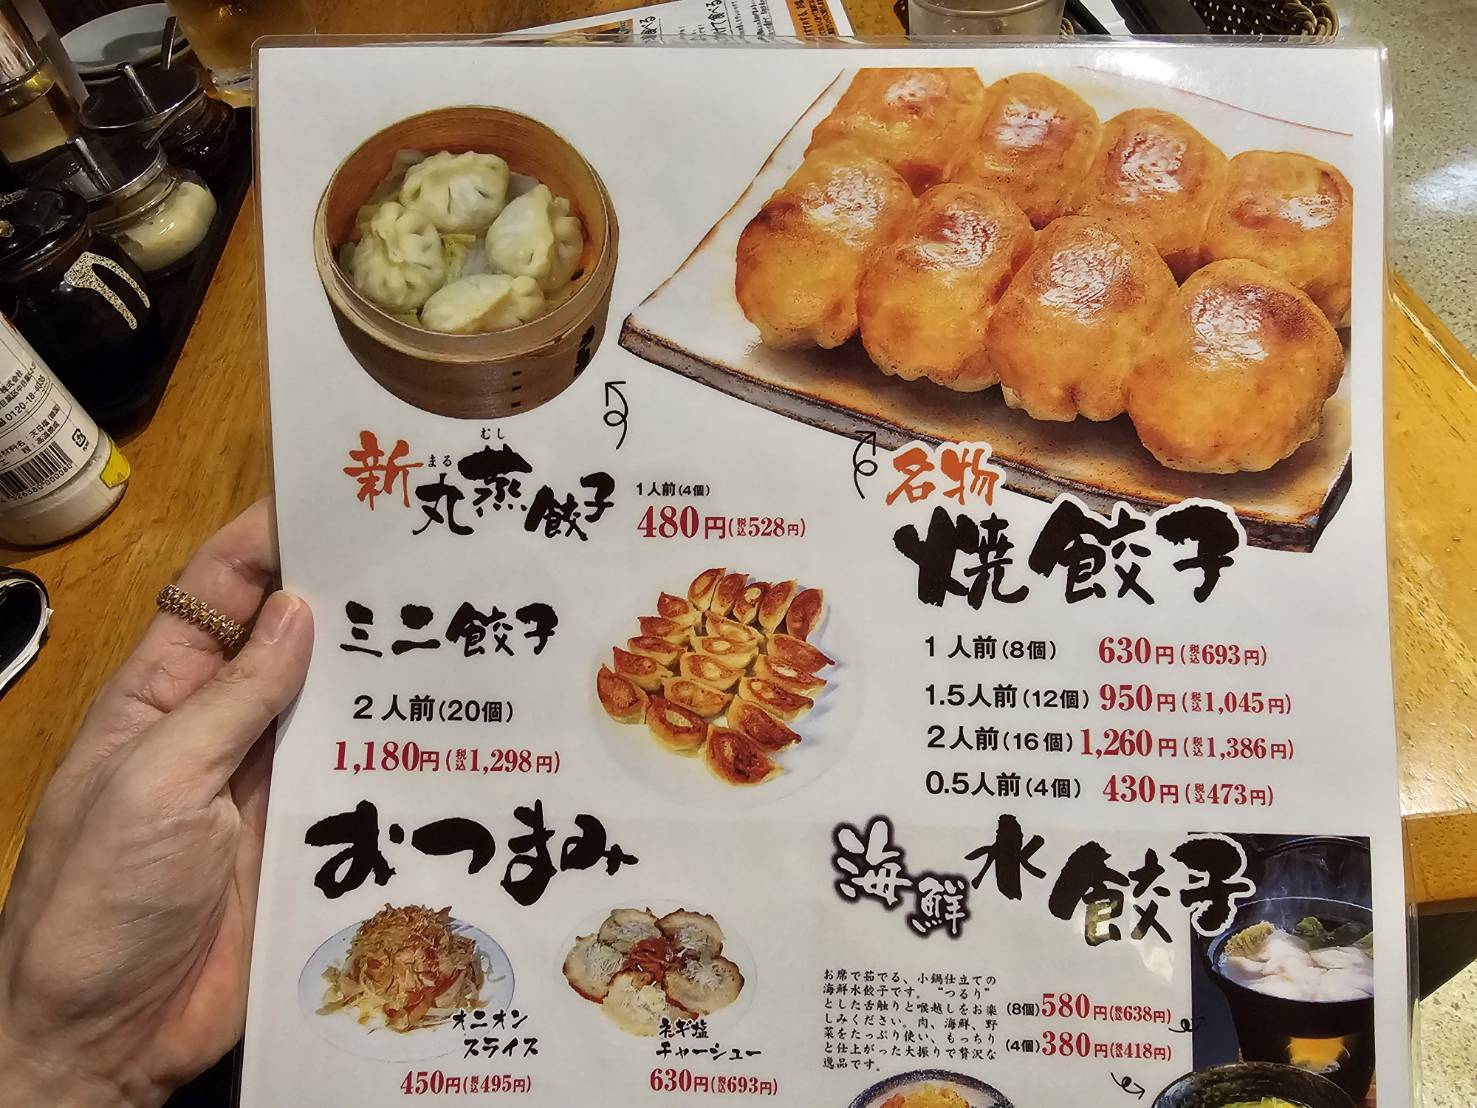 新丸蒸餃子
まる
むし
1人前(4個)
480円(税込528円)
名物
焼餃子
1人前(8個) 630円(税込693円)
1.5人前(12個) 950円(税込1,045円)
2人前(16個) 1,260円(税込1,386円)
0.5人前(4個) 430円(税込473円)
ミニ餃子
2人前(20個)
1,180円(税込1,298円)
おつまみ
オニオン
スライス
450円(税込495円)
ネギ塩
チャーシュー
630円(税込693円)
海鮮水餃子
お席で茹でる、小鍋仕立ての
海鮮水餃子です。"つるり"
とした舌触りと喉越しをお楽
しみください。肉、海鮮、野
菜をたっぷり使い、もっちり
と仕上がった大振りで贅沢な
逸品です。
(8個)580円(税込638円)
(4個)380円(税込418円)
株式会社
0120-18-4